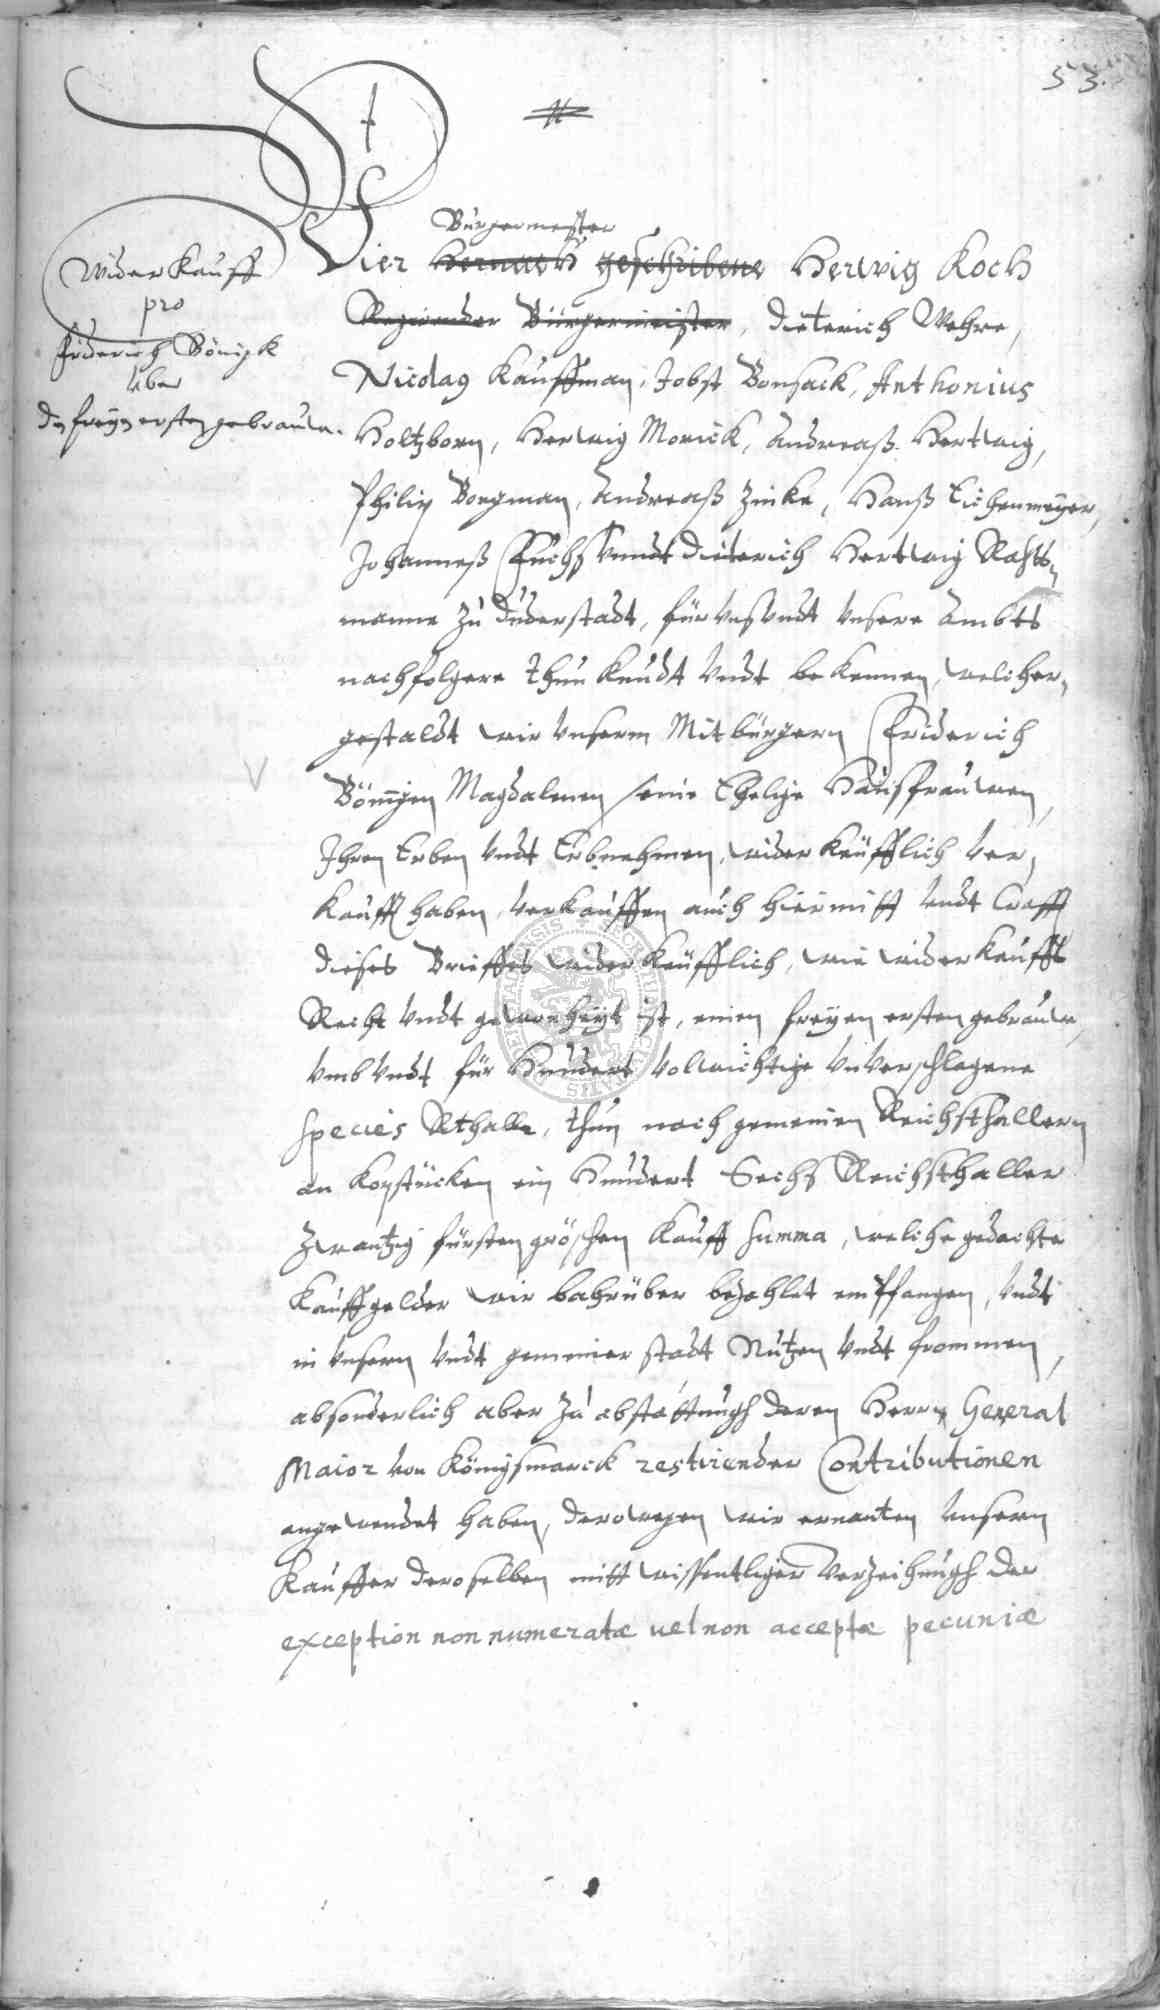 53.
Wiederkauff
pro
Friderich Bönigk
über
den freyen ersten gebrauw.
Bürgermeister
Wier hernach geschribene Herwig Koch
Regirender Bürgermeister, Dieterich Wehre,
Nicolaus Kauffman, Jobst Bonsack, Anthonius
Holtzborn, Herwig Morick, Andreaß Hertwig,
Philip Borgman, Andreaß Zinke, Hanß Eichenmeyer,
Johanneß Fuchs vnndt Dieterich Hertwig Rahts-
manne zu Duderstadt, für vnß vndt vnsere Ambts
nachfolgere thun kundt vndt bekennen, welcher-
gestaldt wir vnserm Mitbürgern Friderich
Bönigen Magdalenen seine Ehelige Haußfrauwen,
Ihren Erben vndt Erbnehmen, widerkäufflich ver-
kaufft haben, verkauffen auch hiermitt vndt Crafft
dieses Brieffes widerkäufflich, wie widerkauffs
Recht vndt gewonheyt ist, einen freyen ersten gebrauw,
vmb vndt für Hundert vollwichtige vnverschlagene
Species Rthall, thun nach gemeinen Reichsthallern
an Kopstücken ein Hundert Sechs Reichsthaller
Zwantzig fürstengröschen Kauff Summa, welche gedachte
Kauffgelder wir bahrüber bezahlet empfangen, vndt
in vnsern vndt gemeiner stadt Nutzen vndt frommen,
absonderlich aber zu abstattungh deren Herrn General
Maior von Königsmarck restirender Contributionen
angewendet haben, derowegen wir ernanten vnsern
Kauffer deroselben mitt wissentliger verzeihungh der
exception non numeratæ vel non acceptæ pecuniæ